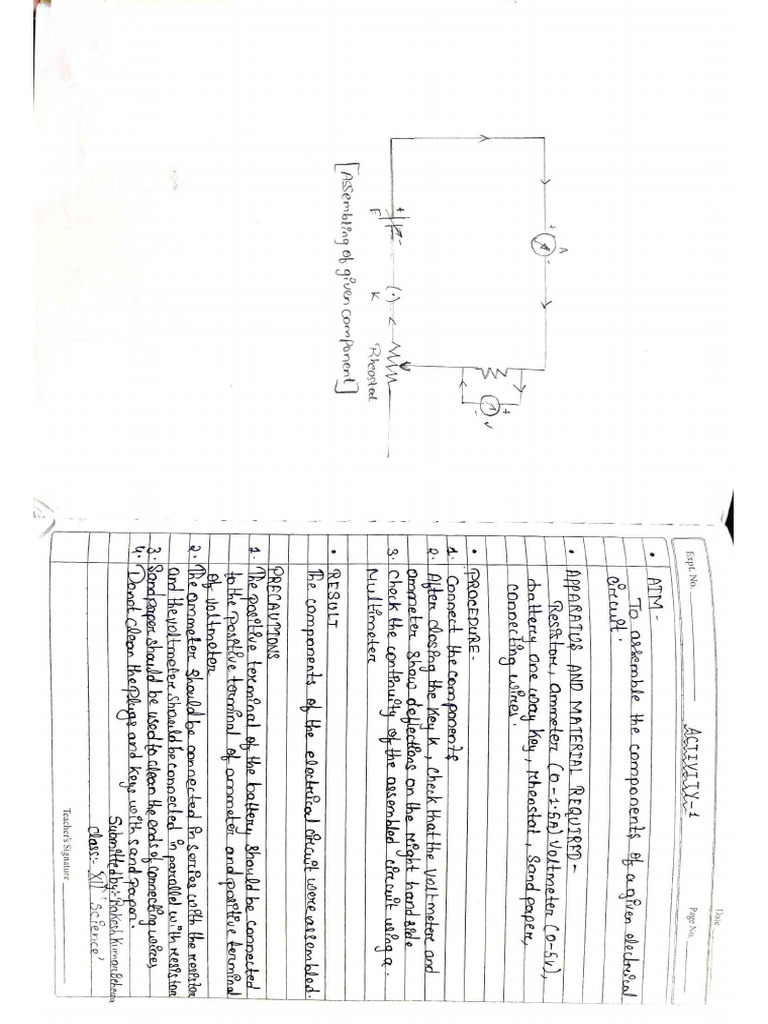 A
+
-
+
V
-
+
-
E
K
Rheostat
[Assembling of given component]
Date
Expt. No.
ACTIVITY-1
Page No.
• AIM -
To assemble the components of a given electrical
circuit.
• APPARATUS AND MATERIAL REQUIRED -
Resistor, Ammeter (0-1.5A) Voltmeter (0-5V),
battery one way key, rheostat, sand paper,
connecting wires.
• PROCEDURE -
1. Connect the components
2. After closing the key K, Check that the voltmeter and
ammeter show deflections on the right hand side
3. Check the continuity of the assembled circuit using a.
Multimeter
• RESULT
The components of the electrical circuit were assembled.
PRECAUTIONS
1. The positive terminal of the battery should be connected
to the positive terminal of ammeter and positive terminal
of voltmeter
2. The ammeter should be connected in series with the resistor
and the voltmeter should be connected in parallel with resistor
3. Sand paper should be used to clean the ends of connecting wires
4. Do not clean the plugs and keys with sand paper.
Submitted by:- Rakesh Kumar Behera
Class:- XII 'Science'
Teacher's Signature